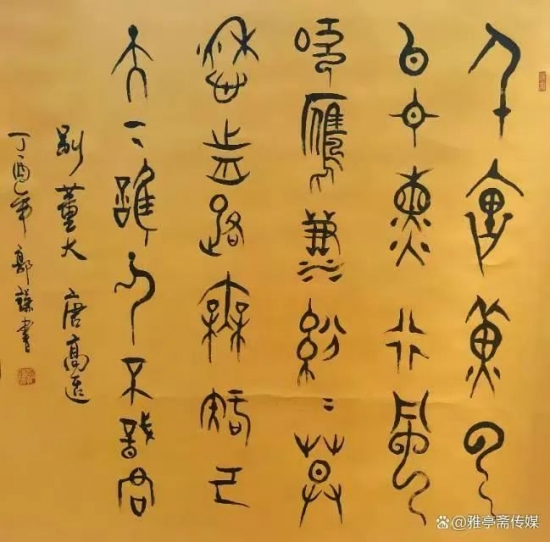 千里黄云
白日熏北風
吹雁雪紛〻莫
愁前路無知己
天下誰人不識君
别董大 唐高适
丁酉年 郭 书
@雅亭斋传媒